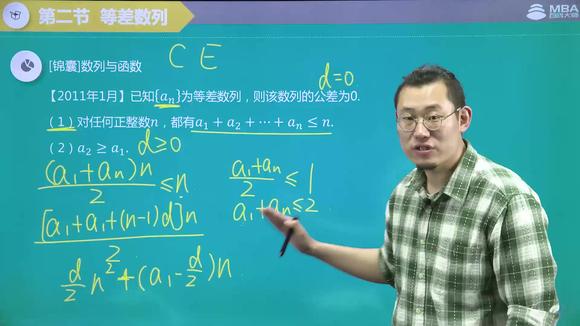 第二节 等差数列
MBA
百科大师
C E
[锦囊]数列与函数
d=0
【2011年1月】已知{aₙ}为等差数列，则该数列的公差为0.
（1）对任何正整数n，都有a₁ + a₂ + ⋯ + aₙ ≤ n.
（2）a₂ ≥ a₁. d≥0
(a₁+aₙ)n/2 ≤n
(a₁+aₙ)/2 ≤ 1
a₁+aₙ≤2
[a₁+a₁+(n-1)d]n/2
d/2 n²+(a₁-d/2)n